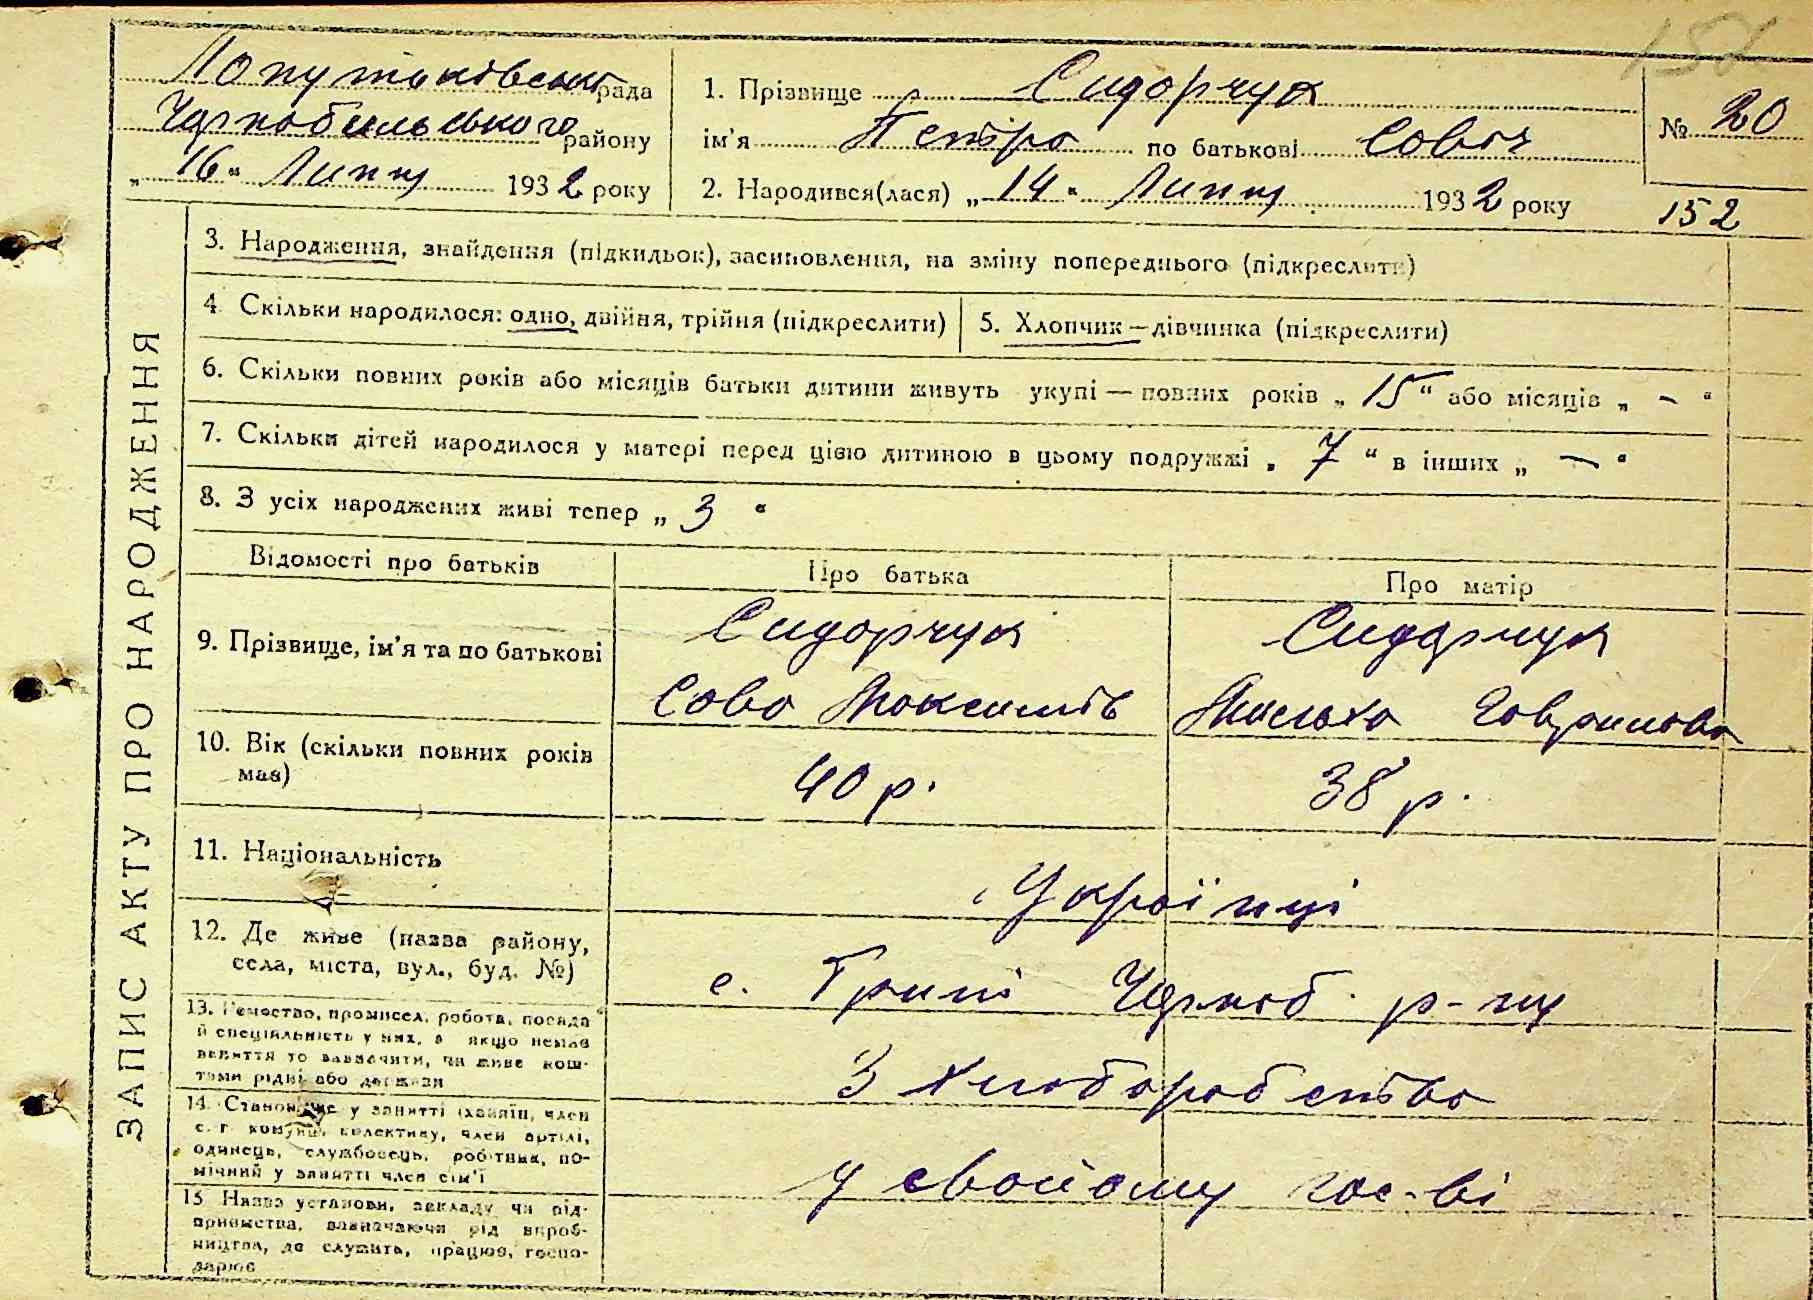 Лопутьківська рада
Чорнобильського району
„ 16 “ Липня 1932 року
1. Прізвище Сидорчук
ім'я Петро по батькові Совіч
2. Народився(лася) „ 14 “ Липня 1932 року
№ 20
152
ЗАПИС АКТУ ПРО НАРОДЖЕННЯ
3. Народження, знайдення (підкидьок), засиновлення, на зміну попереднього (підкреслити)
4. Скільки народилося: одно, двійня, трійня (підкреслити)
5. Хлопчик—дівчинка (підкреслити)
6. Скільки повних років або місяців батьки дитини живуть укупі — повних років „ 15 “ або місяців „ – “
7. Скільки дітей народилося у матері перед цією дитиною в цьому подружжі „ 7 “ в інших „ – “
8. З усіх народжених живі тепер „ 3 “
Відомості про батьків
Про батька
Про матір
9. Прізвище, ім'я та по батькові
Сидорчук
Сово Максимів
Сидорчук
Гаврилова
10. Вік (скільки повних років
має)
40 р.
38 р.
11. Національність
Українці
12. Де живе (назва району,
села, міста, вул., буд. №)
с. Чорноб. р-ну
13. Ремество, промисел, робота, посада
й спеціальність у них, а якщо немає
заняття то зазначити, чи живе кош-
тами рідні або держави
З хліборобства
14. Становище у занятті (хазяїн, член
с. г. комуни, колективу, член артілі,
одинець, службовець, робітник, по-
мічний у занятті член сім'ї
у свойому гос-ві
15. Назва установи, закладу чи під-
приємства, зазначаючи рід вироб-
ництва, де служить, працює, госпо-
дарює